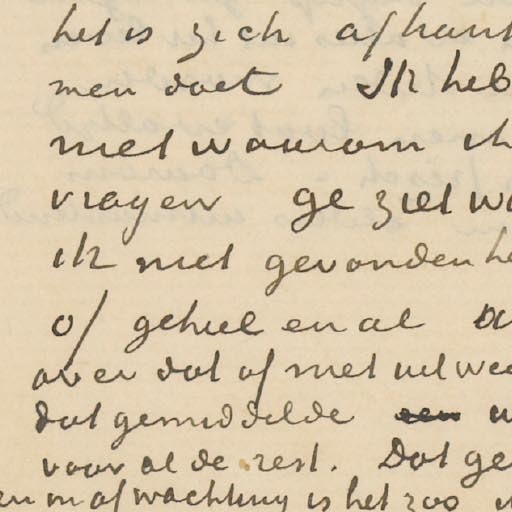 het is zich afhank
men doet Ik heb
niet waarom ik
vragen ge ziet wa
ik niet gevonden he
of geheel en al
over dat of met uit wee
dat gemiddelde een
voor al de rest. Dat ge
en in afwachting is het zoo